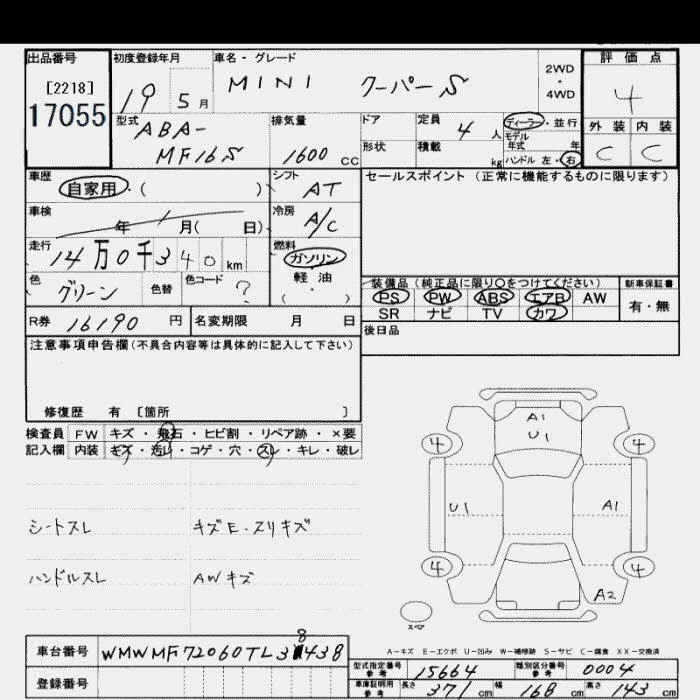 出品番号
[2218]
17055
初度登録年月
19 5月
車名・グレード
MINI クーパーS
2WD
・
4WD
評価点
4
外装 内装
C C
型式
ABA-
MF16S
排気量
1600 cc
ドア
定員
4 人
形状
積載
kg
ディーラー・並行
モデル
年式 年
ハンドル 左・右
車歴
自家用・( )
シフト
AT
セールスポイント (正常に機能するものに限ります)
車検
年 月( 日)
冷房
A/C
走行
14万0千340 km
燃料
ガソリン
軽・油
( )
色
グリーン
色替
色コード
?
装備品 (純正品に限り〇をつけてください)
新車保証書
PS PW ABS エアB AW
有・無
SR ナビ TV カワ
R券 16190 円
名変期限 月 日
後日品
注意事項申告欄 (不具合内容等は具体的に記入して下さい)
修復歴 有 [箇所 ]
検査員 FW キズ・飛石・ヒビ割・リペア跡・×要
記入欄 内装 キズ・汚レ・コゲ・穴・スレ・キレ・破レ
A1
U1
4 4
U1 A1
4 4
A2
スペア
シートスレ キズE・スリキズ
ハンドルスレ AWキズ
A-キズ E-エクボ U-凹み W-補修跡 S-サビ C-腐食 XX-交換済
車台番号 WMWMF72060TL38438
登録番号
型式指定番号
参考
15664
類別区分番号
参考
0004
車庫証明用
参考
長さ 371 cm 幅 168 cm 高さ 143 cm